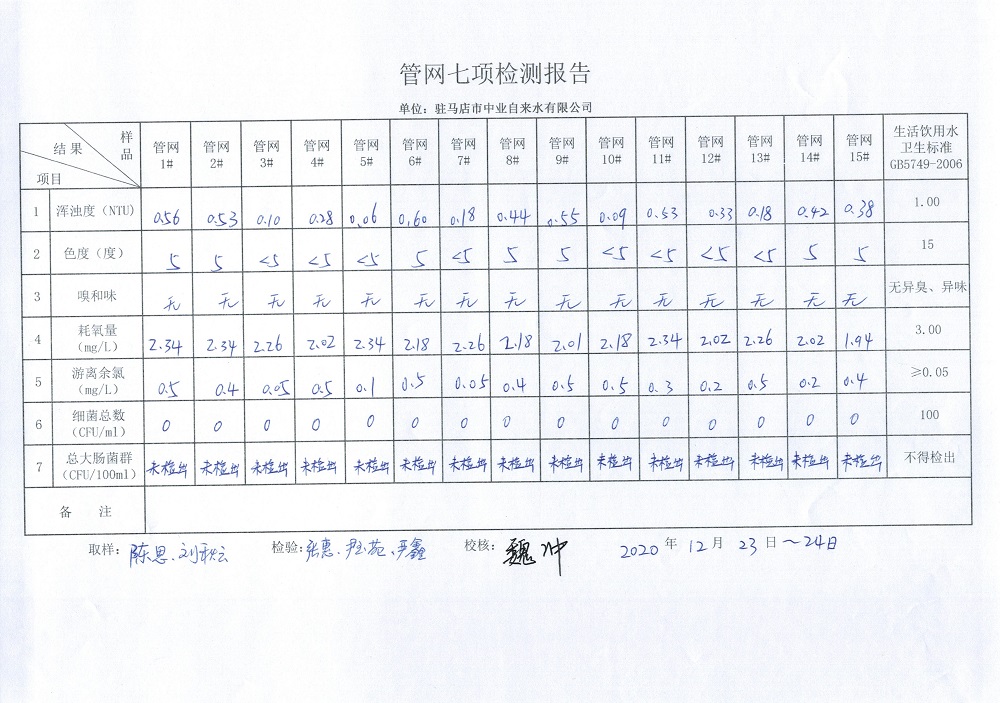 管网七项检测报告
单位：驻马店市中业自来水有限公司
结果 样品 项目 管网1# 管网2# 管网3# 管网4# 管网5# 管网6# 管网7# 管网8# 管网9# 管网10# 管网11# 管网12# 管网13# 管网14# 管网15# 生活饮用水卫生标准GB5749-2006
1 浑浊度（NTU） 0.56 0.53 0.10 0.28 0.06 0.60 0.18 0.44 0.55 0.09 0.53 0.33 0.18 0.42 0.38 1.00
2 色度（度） 5 5 <5 <5 <5 5 <5 5 5 <5 <5 <5 <5 5 5 15
3 嗅和味 无 无 无 无 无 无 无 无 无 无 无 无 无 无 无 无异臭、异味
4 耗氧量（mg/L） 2.34 2.34 2.26 2.02 2.34 2.18 2.26 2.18 2.01 2.18 2.34 2.02 2.26 2.02 1.94 3.00
5 游离余氯（mg/L） 0.5 0.4 0.05 0.5 0.1 0.5 0.05 0.4 0.5 0.5 0.3 0.2 0.5 0.2 0.4 ≥0.05
6 细菌总数（CFU/ml） 0 0 0 0 0 0 0 0 0 0 0 0 0 0 0 100
7 总大肠菌群（CFU/100ml） 未检出 未检出 未检出 未检出 未检出 未检出 未检出 未检出 未检出 未检出 未检出 未检出 未检出 未检出 未检出 不得检出
备 注
取样：陈思、刘秋云 检验：张惠、尹苑、尹鑫 校核：魏冲 2020年12月23日～24日